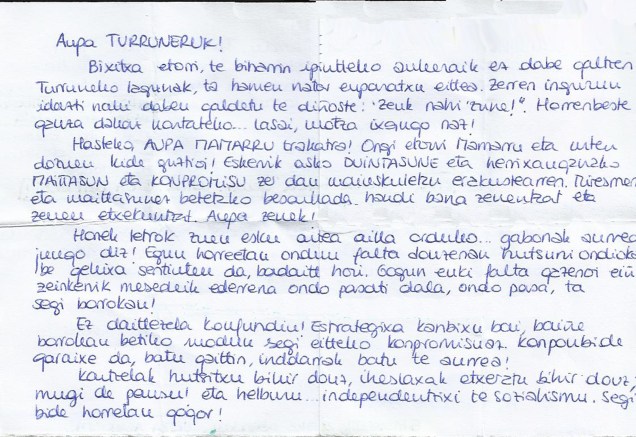 Aupa TURRUNERUK!
Bixitza etorri, te biharrin ipintteko aukeraik ez dabe galtzen
Turruneko lagunak, ta hemen nator euparatxu eittea. Zerren inguruen
idatzi nahi daben galdetu te diñoste: "Zeuk nahi zune!". Horrenbeste
gauza dakat kontateko... lasai, motza izengo naz!
Hasteko, AUPA MAITARRU trakatra! Ongi etorri Mamarru eta urten
dozuen kide guztioi! Eskerrik asko DUINTASUNE eta herrixanganako
MAITTASUN eta KONPROMISU zer dan maisuki erakustearren. Miresmen
eta maittasunez betetzeko besarkada haudi bana zeuentzat eta
zeuen etxekuntzat. Aupa zeuek!
Honek letrok zuen esku artea ailla orduko... gabonak aurrea
juengo diz! Egun horreetan ondiun falta douzenan hutsuni ondioko
be gehixa sentiuten da, badaitt hori. Gogun euki falta gazenoi eiñ
zeinkenik mesedeik ederrena ondo pasati dala, ondo pasa, ta
segi borrokan!
Ez daittezela konfundiu! Estrategixa kanbixu bai, baiñe
borrokan betiko moduen segi eitteko konpromisuaz. Konponbide
garaixe da, batu gaittin, indarrak batu te aurrea!
Kartzelak hutsitxu bihir douz, iheslaxak etxeratu bihir douz,
mugi de pausu! eta helburu... independentzixi te sozialismu. Segi
bide horretan gogor!